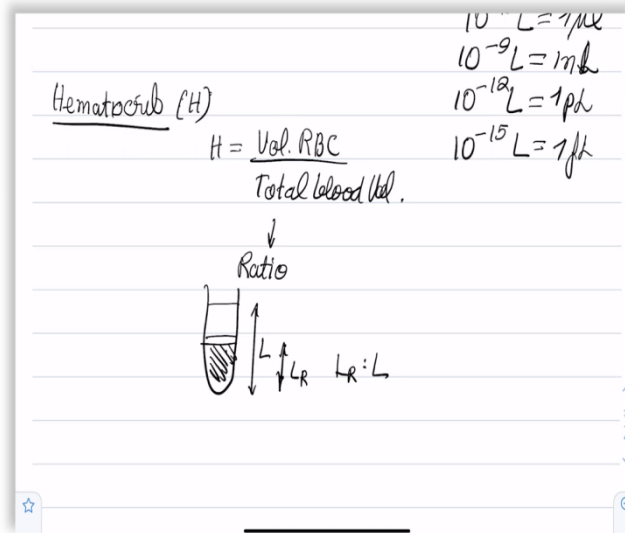 10⁻⁹L = 1nL
10⁻¹²L = 1pL
10⁻¹⁵L = 1fL
Hematocrit (H)
H = Vol. RBC
Total blood Vol.
↓
Ratio
L
L_R
L_R : L